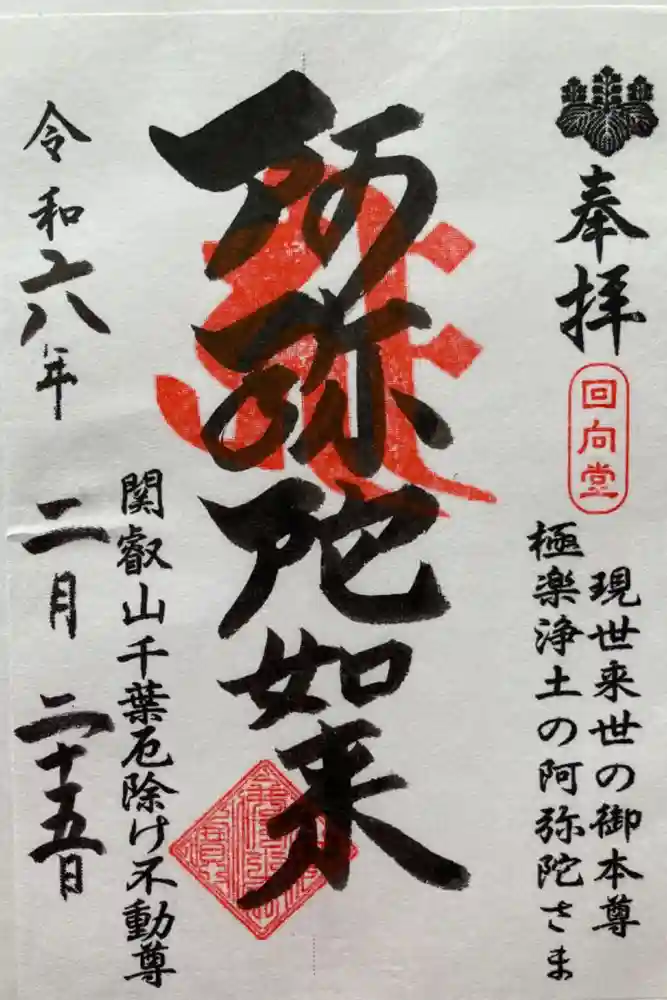 奉拝
回向堂
現世来世の御本尊
極楽浄土の阿弥陀さま
阿弥陀如来
関叡山千葉厄除け不動尊
令和六年 二月 二十五日